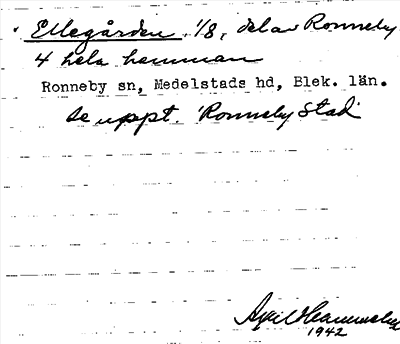 Ellegården 1/8, del av Ronneby
4 hela hemman
Ronneby sn, Medelstads hd, Blek. län.
se uppt. Ronneby Stad
1942